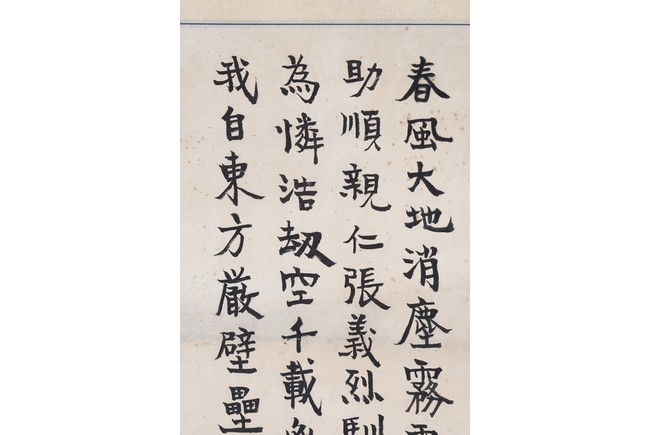 春風大地消塵霧
助順親仁張義烈馴
為憐浩劫空千載
我自東方厳壁壘